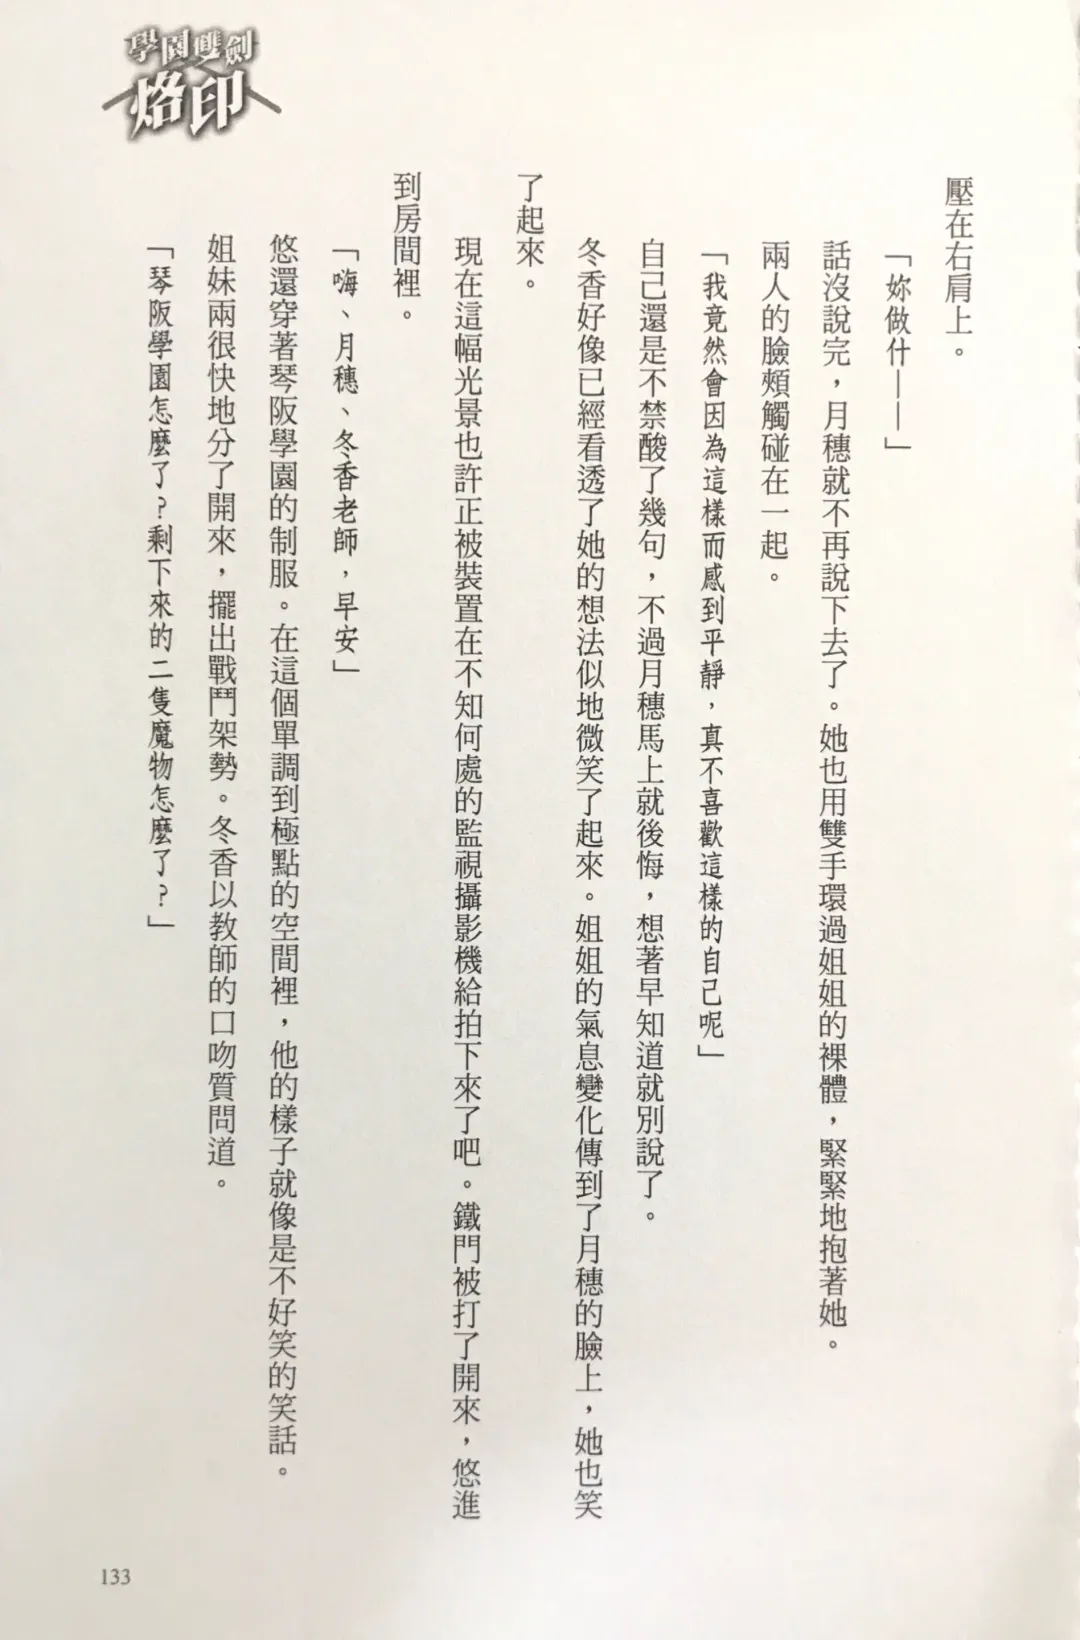 學園雙劍
烙印
壓在右肩上。
「妳做什——」
話沒說完，月穗就不再說下去了。她也用雙手環過姐姐的裸體，緊緊地抱著她。
兩人的臉頰觸碰在一起。
「我竟然會因為這樣而感到平靜，真不喜歡這樣的自己呢」
自己還是不禁酸了幾句，不過月穗馬上就後悔，想著早知道就別說了。
冬香好像已經看透了她的想法似地微笑了起來。姐姐的氣息變化傳到了月穗的臉上，她也笑
了起來。
現在這幅光景也許正被裝置在不知何處的監視攝影機給拍下來了吧。鐵門被打了開來，悠進
到房間裡。
「嗨、月穗、冬香老師，早安」
悠還穿著琴阪學園的制服。在這個單調到極點的空間裡，他的樣子就像是不好笑的笑話。
姐妹兩很快地分了開來，擺出戰鬥架勢。冬香以教師的口吻質問道。
「琴阪學園怎麼了？剩下來的二隻魔物怎麼了？」
133